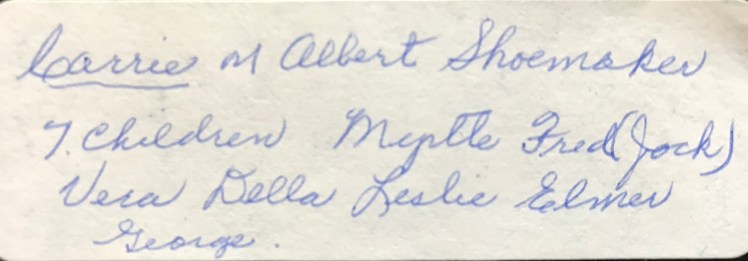 Carrie M Albert Shoemaker
7. Children Myrtle Fred (Jack)
Vera Della Leslie Elmer
George.